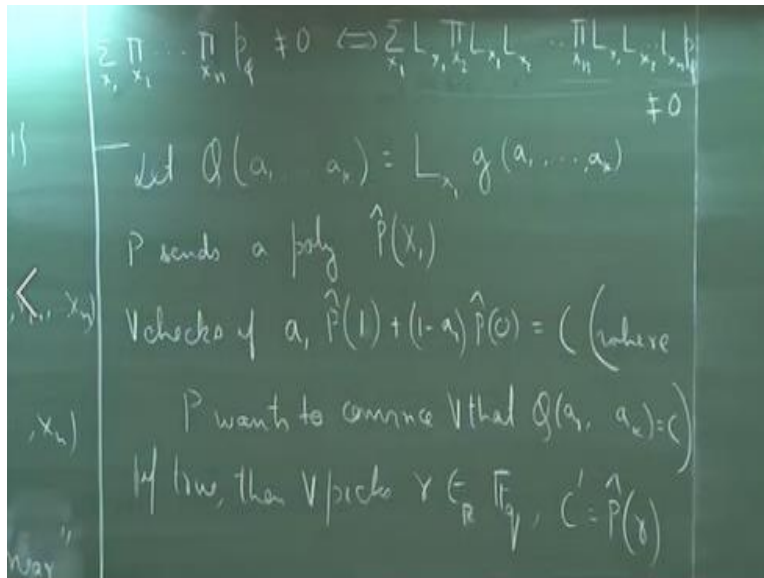 ∑_{x₁} ∏_{x₂} ⋯ ∏_{xₙ} p_φ ≠ 0 ⇔ ∑_{x₁} L_{x₁} ∏_{x₂} L_{x₁} L_{x₂} ⋯ ∏_{xₙ} L_{x₁} L_{x₂} ⋯ L_{xₙ} p_φ
≠ 0
Let Q(a₁ ... aₖ) = L_{x₁} g(a₁, ..., aₖ)
P sends a poly P̂(X₁)
V checks if a₁ P̂(1) + (1-a₁) P̂(0) = C (where
P wants to convince V that Q(a₁, aₖ) = C)
If true, then V picks γ ∈_R F_q, C' = P̂(γ)
1)
, xₙ)
, xₙ)
"
way